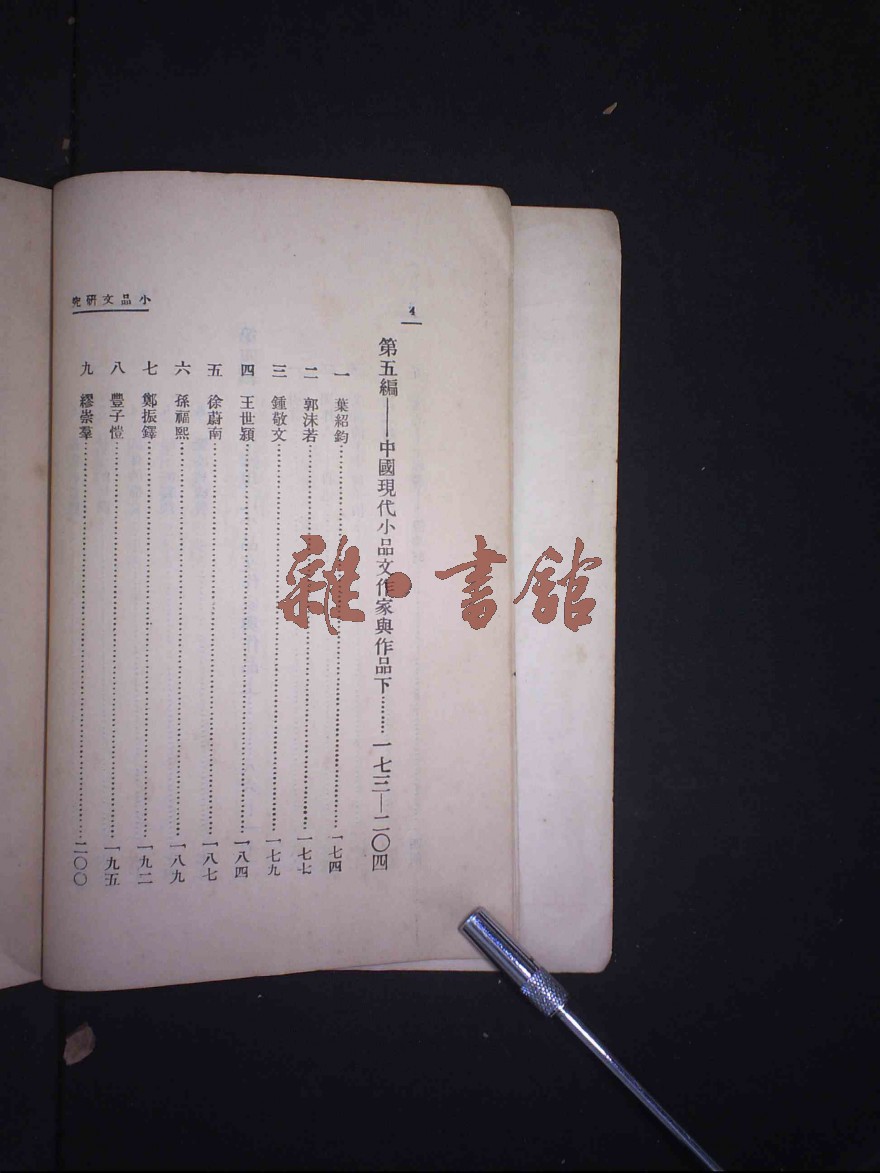 小品文研究
4
第五編——中國現代小品文作家與作品下………一七三—二〇四
一 葉紹鈞………一七四
二 郭沫若………一七七
三 鍾敬文………一七九
四 王世頴………一八四
五 徐蔚南………一八七
六 孫福熙………一八九
七 鄭振鐸………一九二
八 豐子愷………一九五
九 繆崇羣………二〇〇
雜·書館